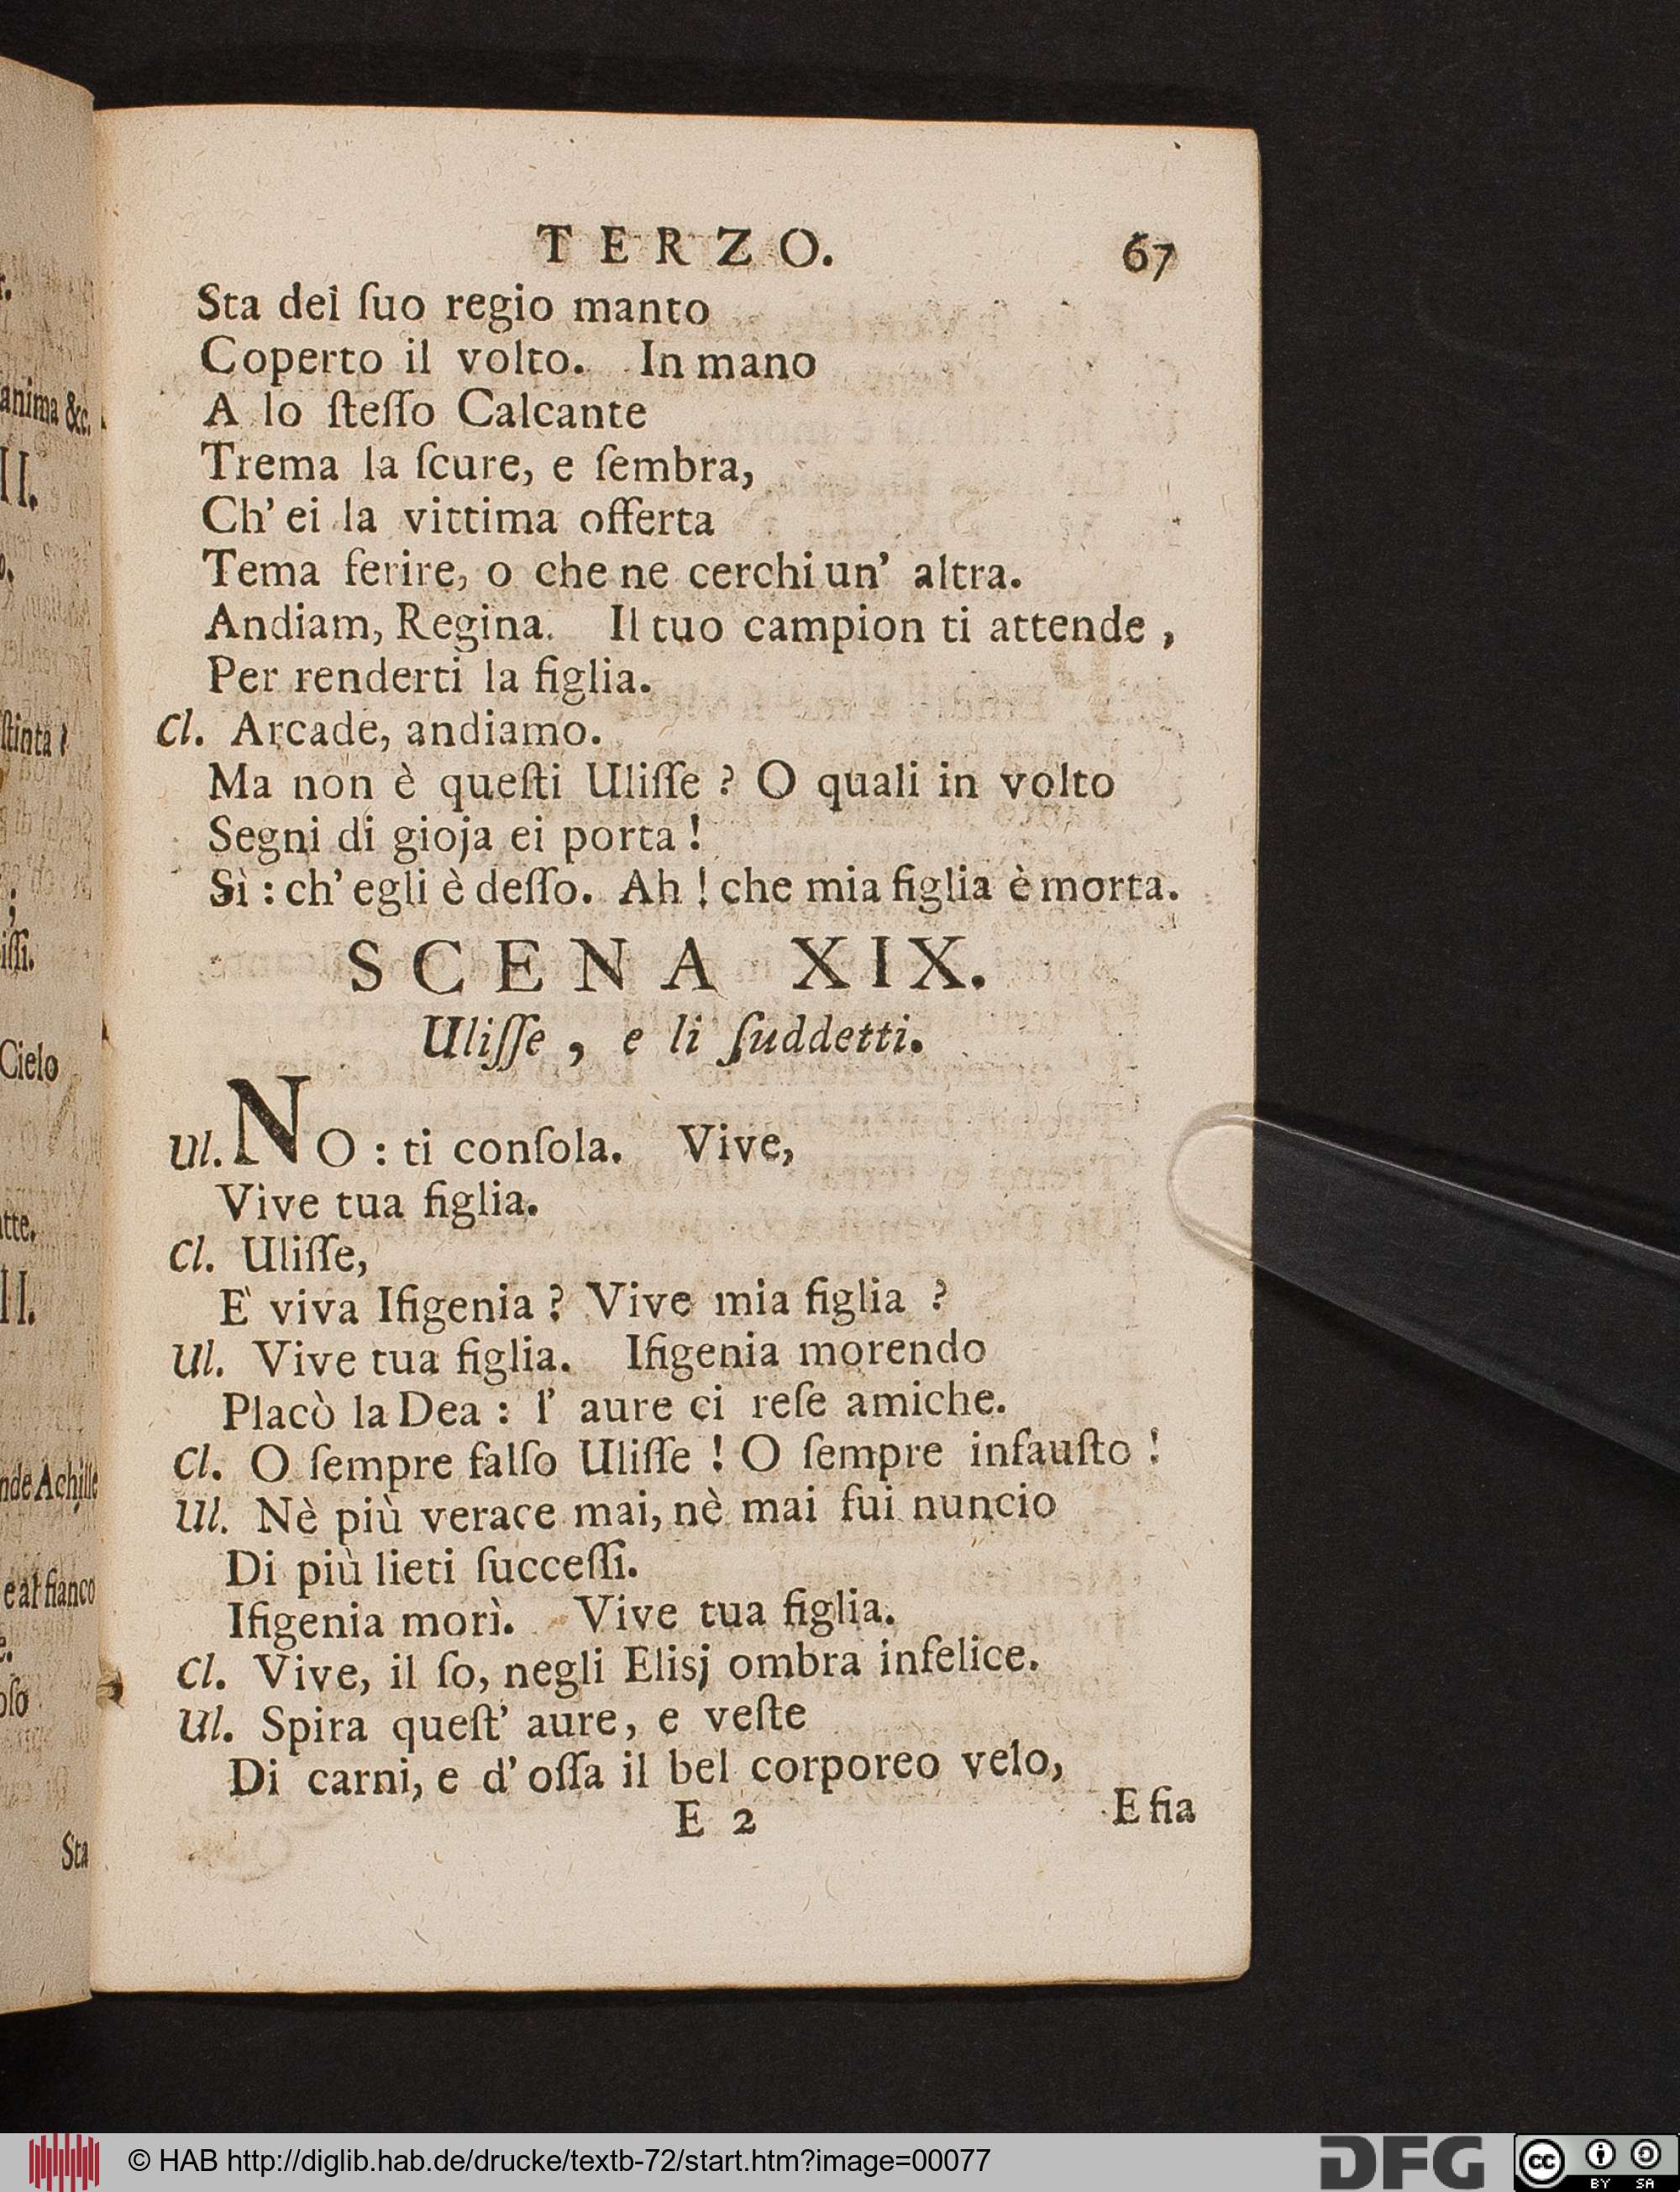 TERZO. 67
Sta del ſuo regio manto
Coperto il volto. In mano
A lo ſteſſo Calcante
Trema la ſcure, e ſembra,
Ch' ei la vittima offerta
Tema ferire, o che ne cerchi un' altra.
Andiam, Regina. Il tuo campion ti attende,
Per renderti la figlia.
Cl. Arcade, andiamo.
Ma non è queſti Uliſſe? O quali in volto
Segni di gioja ei porta!
Sì: ch' egli è deſſo. Ah! che mia figlia è morta.
SCENA XIX.
Uliſſe, e li ſuddetti.
Ul. NO: ti conſola. Vive,
Vive tua figlia.
Cl. Uliſſe,
E' viva Ifigenia? Vive mia figlia?
Ul. Vive tua figlia. Ifigenia morendo
Placò la Dea: l' aure ci reſe amiche.
Cl. O ſempre falſo Uliſſe! O ſempre infauſto!
Ul. Nè più verace mai, nè mai fui nuncio
Di più lieti ſucceſſi.
Ifigenia morì. Vive tua figlia.
Cl. Vive, il ſo, negli Elisj ombra infelice.
Ul. Spira queſt' aure, e veſte
Di carni, e d' oſſa il bel corporeo velo,
E 2 E fia
anima &c.
II.
ſtinta?
iſſi.
Cielo
tte.
II.
nde Achille
e al fianco
oſo
Sta
© HAB http://diglib.hab.de/drucke/textb-72/start.htm?image=00077
DFG
cc BY SA